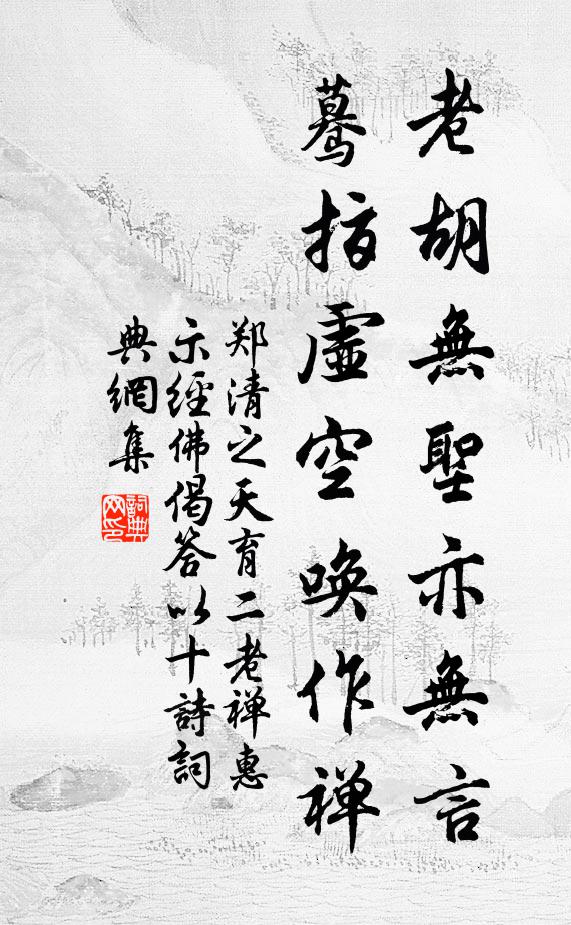 老胡無聖亦無言
驀指虛空喚作禪
郑清之天育二老禅惠
示經佛偈答以十詩詞
典網集
詞典
网印